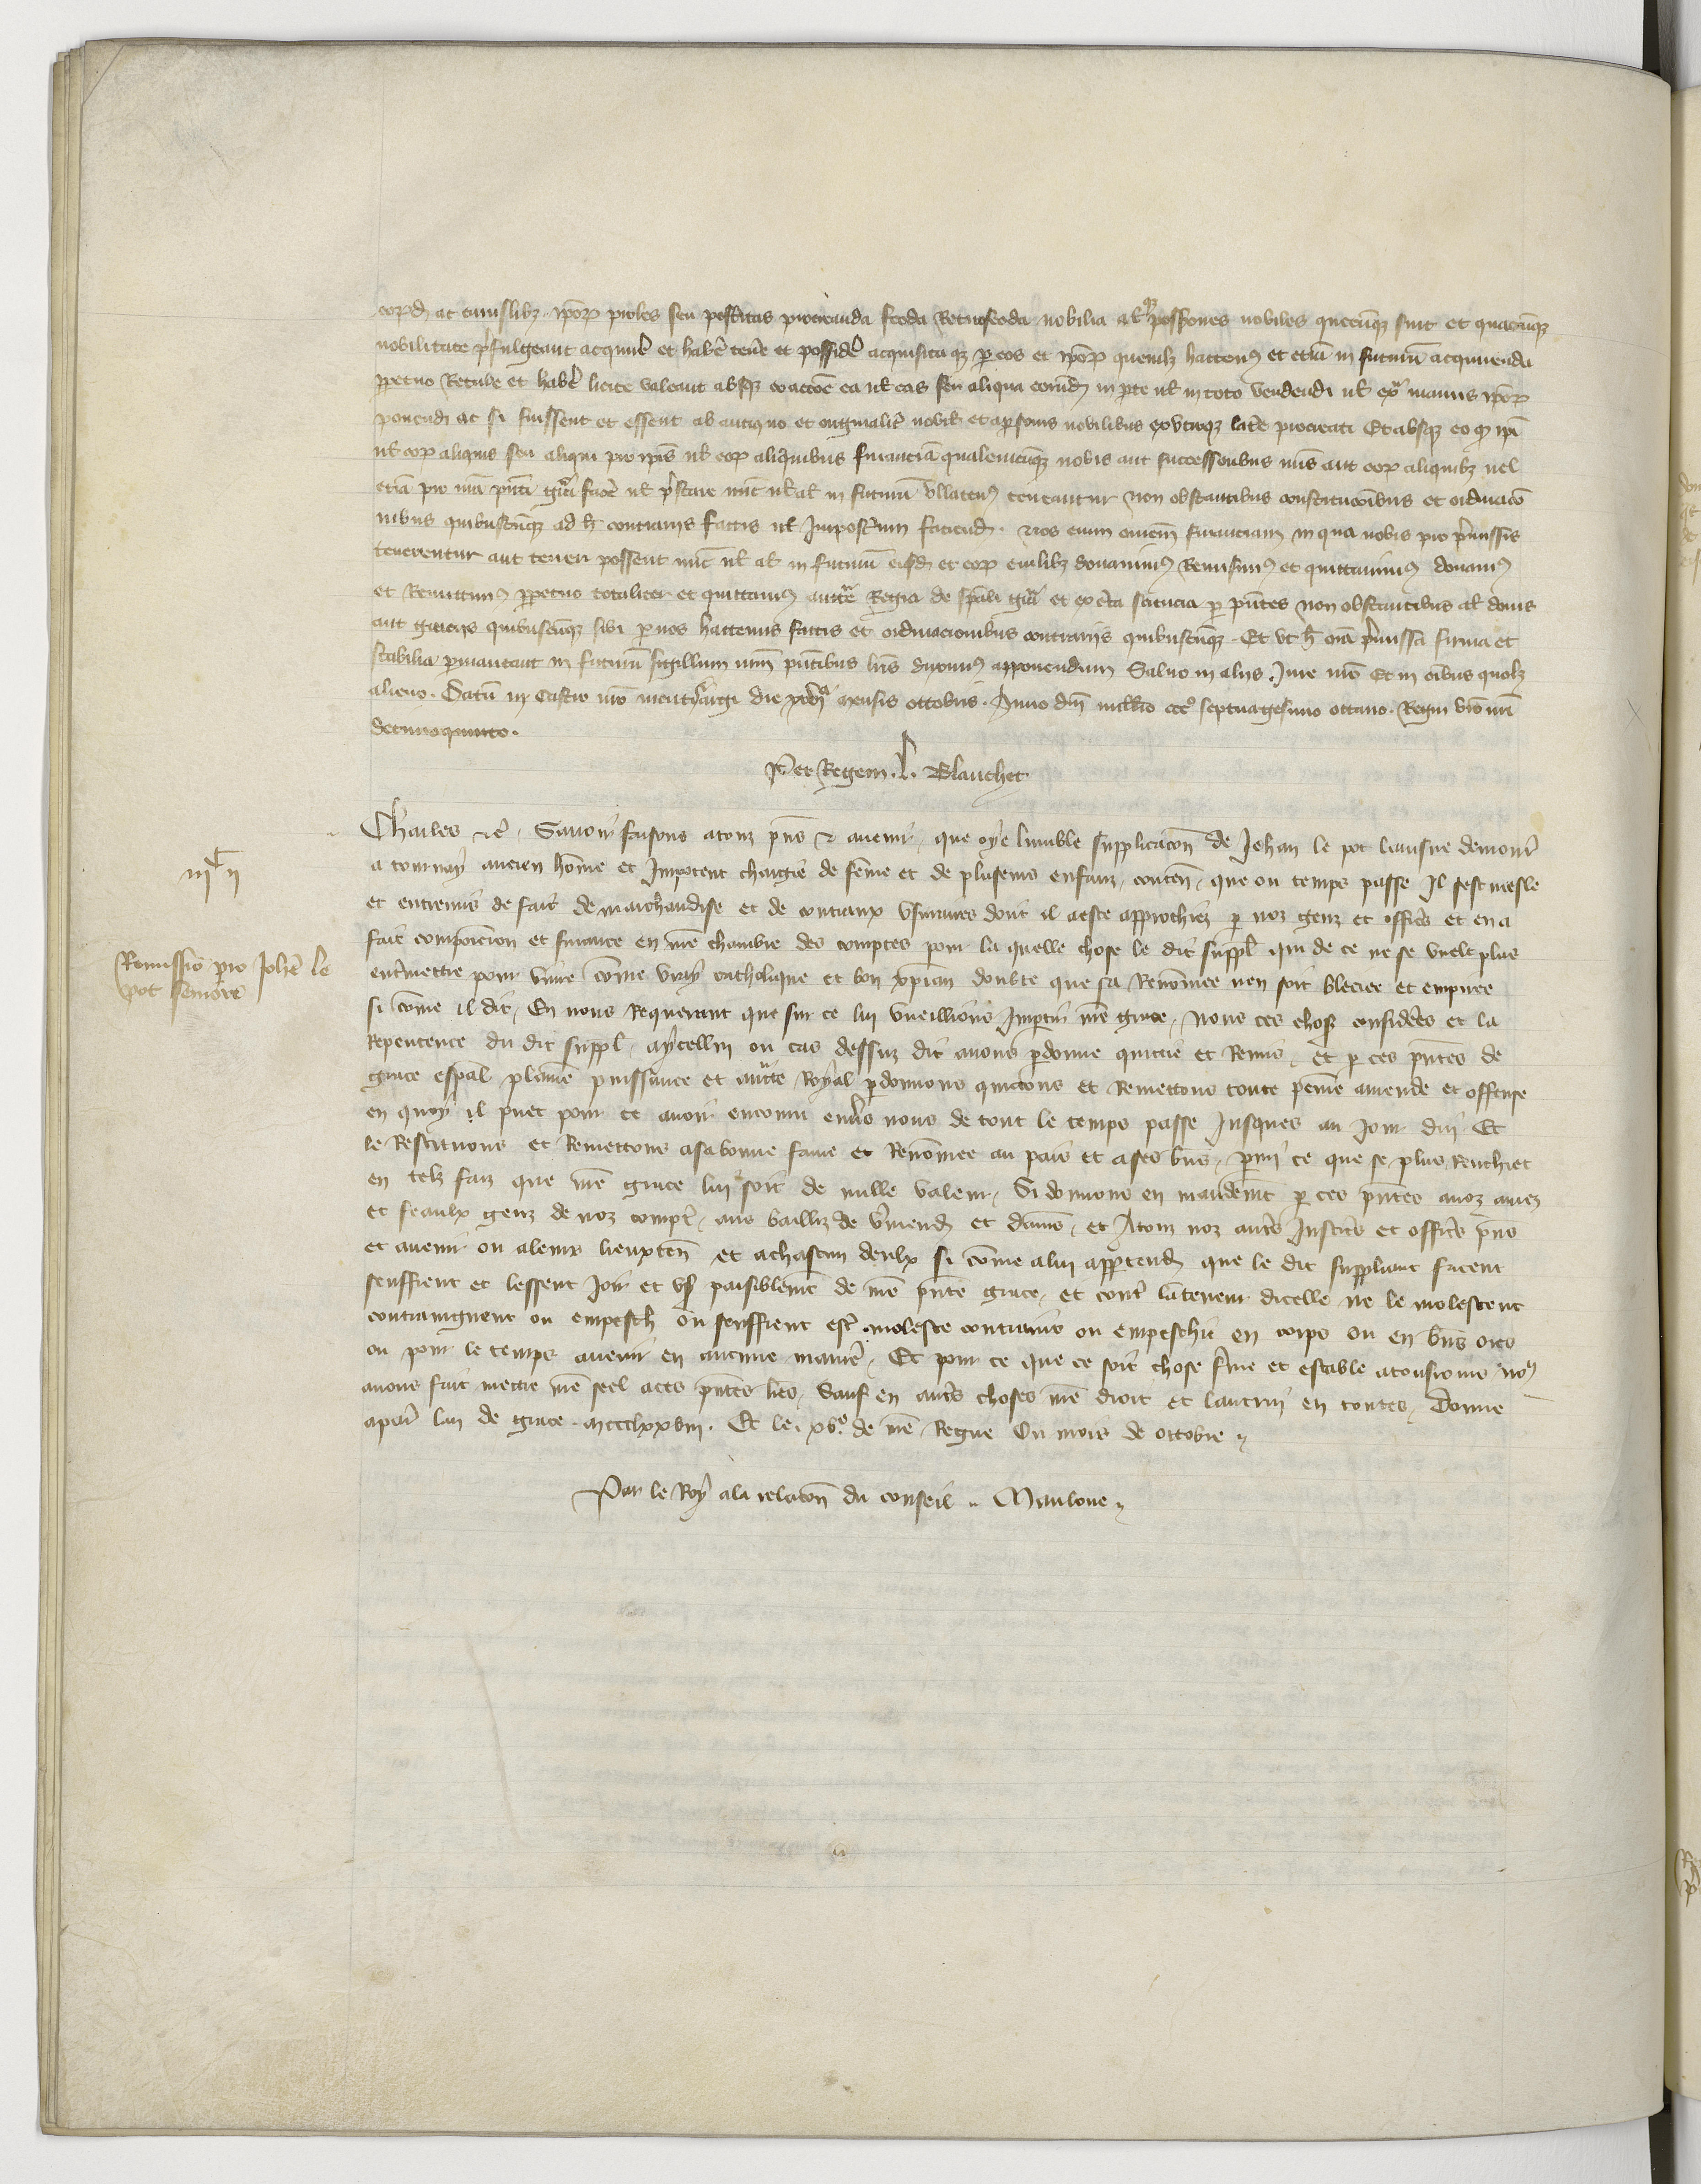 eorumd ac cuiuslibz ipor proles seu posteritas procreanda feoda Retrofeoda nobilia aliasqz possessiones nobiles quecunqz sint et quacunqz
nobilitate prefulgeant acquirere et habere tenere et possidere acquisita qz per eos et ipor quemlz hactenus et etiam in futurum acquirenda
perpetuo Retinere et habere licite valeant absqz coaccione ea vel eas seu aliqua eorumd in parte vel in toto vendendi vel extra manus ipor
ponendi ac si fuissent et essent ab antiquo et originaliter nobiles et a personis nobilibus ex utroqz latere procreati Et absqz eo quod ipi
vel eor aliquis seu aliqui pro ipis vel eor aliquibus financiam qualemcunqz nobis aut successoribus nris aut eor aliquibz vel
etiam pro nra pnti gra facere vel prestare nunc vel al in futurum ullatenus teneantur non obstantibus constitucionibus et ordinacio
nibus quibuscunqz ad hoc contrariis factis vel Imposterum faciend. Nos enim omnem financiam in qua nobis pro premissis
tenerentur aut teneri possent nunc vel al in futurum eisd et eor cuilibz donavimus Remisimus et quittavimus donamus
et Remittimus perpetuo totaliter et quittamus auctte Regia de spali gra et ex certa sciencia per pntes non obstantibus al donis
aut graciis quibuscunqz sibi per nos hactenus factis et ordinacionibus contrariis quibuscunqz. Et ut hec oia premissa firma et
stabilia permaneant in futurum sigillum nrm pntibus lris duximus apponendum Salvo in aliis Jure nro Et in oibus quolz
alieno. Datum in Castro nro montisargi die mensis octobris. Anno dni millmo ccc septuagesimo octavo. Regni vero nri
decimoquinto.
Per Regem. L. Blanchet
Charles etc. Savoir faisons a touz pns et avenir, que oye lumble supplicacon de Jehan le pot lainsne demour
a tournay ancien home et Impotent chargie de feme et de pluseurs enfanz, conten, que ou temps passe Il sest mesle
et entremis de fait de marchandise et de contraux usuraires dont il a este approchiez par noz genz et officrs et en a
fait composicion et finance en nre chambre des comptes pour la quelle chose le dit suppl qui de ce ne se vuelt plus
entremettre pour vivre come vray catholique et bon xpian doubte que sa Renomee nen soit blecee et empiree
si come il dit, En nous Requerant que sur ce lui vueillions Impartir nre grace, Nous ces choses considerees et la
Repentence du dit suppl, a ycellui ou cas dessuz dit avons pardonne quictie et Remis, et par ces pntes de
grace espal plaine puissance et auctte Royal pardonnons quictons et Remettons toute peine amende et offense
en quoy il puet pour ce avoir encouru envers nous de tout le temps passe Jusques au jour dui Et
le Restituons et Remettons a sa bonne fame et Renomee au pais et a ses biens, parmi ce que se plus Renchiet
en telz faiz que nre grace lui soit de nulle valeur, Si donnons en mandement par ces pntes a noz amez
et feaulx genz de noz comptes, aus bailliz de vermend et damiens, et A touz noz autres Justiciers et officrs pns
et avenir ou a leurs lieuxten et a chascun deulx si come a lui appartend que le dit suppliant facent
seuffrent et lessent Joir et user paisiblement de nre pnte grace, et contre la teneur dicelle ne le molestent
contraingnent ou empeschent ou seuffrent estre moleste contraint ou empeschie en corps ou en biens ores
ou pour le temps avenir en aucune maniere, Et pour ce que ce soit chose ferme et estable a tousjours nous
avons fait mettre nre seel a ces pntes lres, Sauf en autres choses nre droit et lautrui en toutes, Donne
a paris lan de grace mccclxxviii. Et le xve. de nre Regne Ou mois de octobre
Par le Roy a la relacon du conseil. Manlone
iiic ii
Remissio pro Johe le
pot seniore